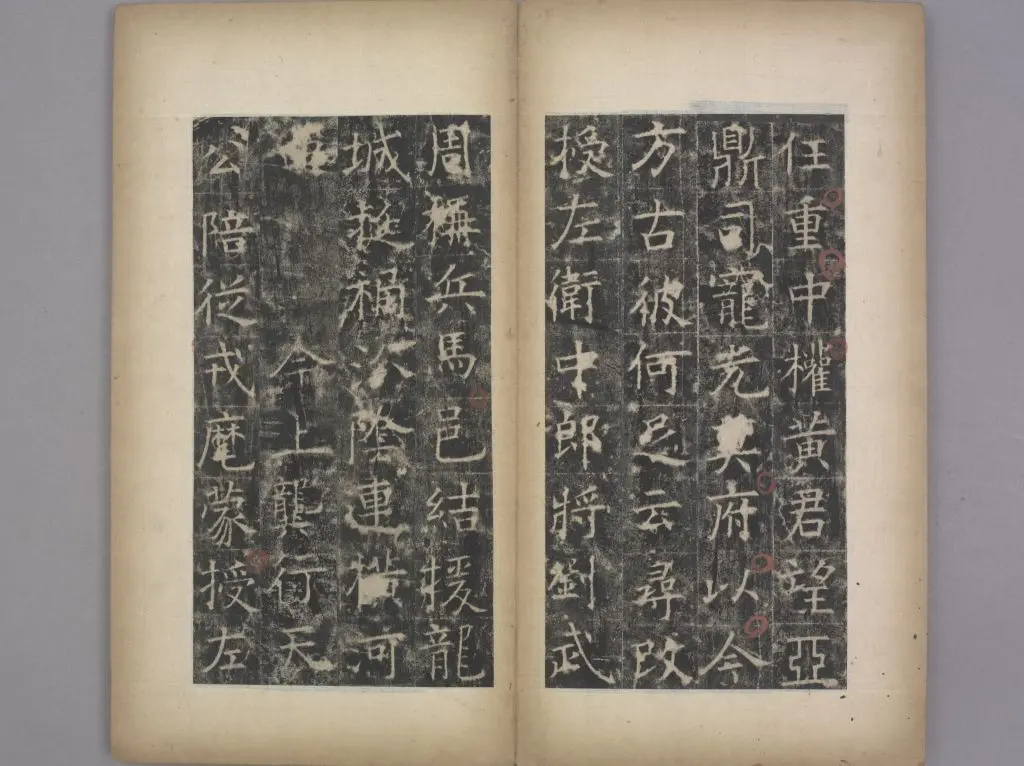 任重中權黃君望亞
鼎司寵光府以今
方古彼何足云尋改
授左衛中郎將劉武
周稱兵馬邑結援龍
城挻禍汾陰連橫河
今上龔行天
公陪從戎麾蒙授左